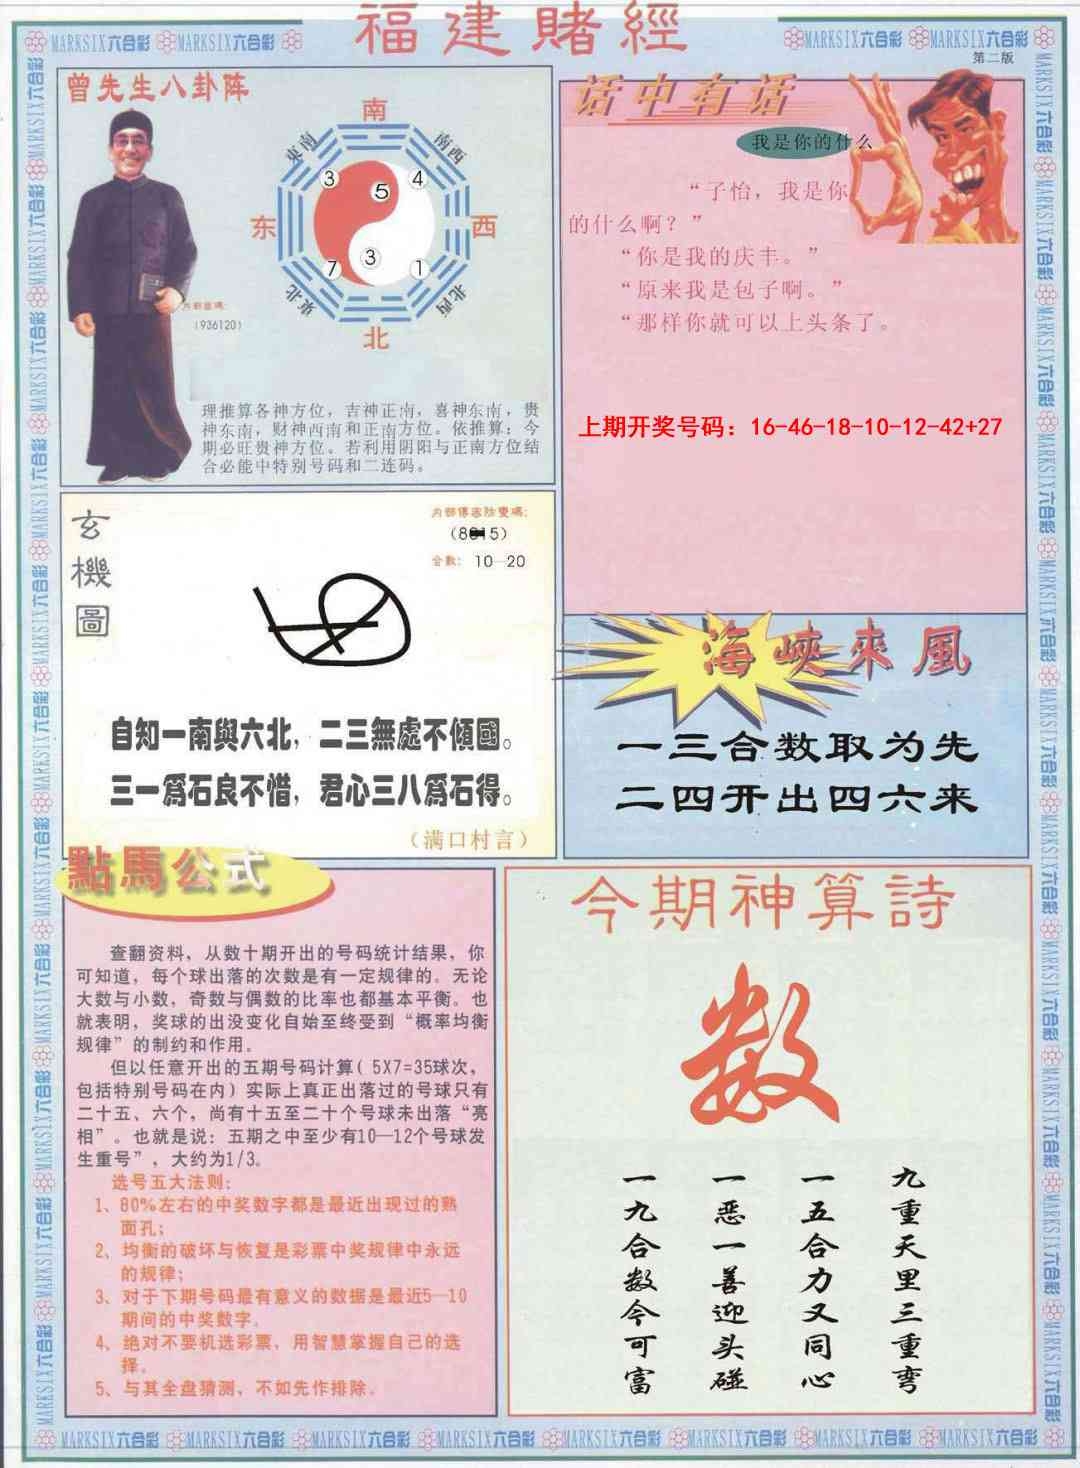 福建賭經
MARKSIX六合彩 MARKSIX六合彩 MARKSIX六合彩 MARKSIX六合彩
第二版
曾先生八卦阵
南
東南 南西
3 5 4
东 西
7 3 1
東北 北西
北
(936120)
理推算各神方位，吉神正南，喜神东南，贵
神东南，财神西南和正南方位。依推算：今
期必旺贵神方位。若利用阴阳与正南方位结
合必能中特别号码和二连码。
话中有话
我是你的什么
“子怡，我是你
的什么啊？”
“你是我的庆丰。”
“原来我是包子啊。”
“那样你就可以上头条了。
上期开奖号码：16-46-18-10-12-42+27
玄機圖
合數：10—20
自知一南與六北，二三無處不傾國。
三一爲石良不惜，君心三八爲石得。
（满口村言）
海峽來風
一三合数取为先
二四开出四六来
點馬公式
查翻资料，从数十期开出的号码统计结果，你
可知道，每个球出落的次数是有一定规律的。无论
大数与小数，奇数与偶数的比率也都基本平衡。也
就表明，奖球的出没变化自始至终受到“概率均衡
规律”的制约和作用。
但以任意开出的五期号码计算（5X7=35球次，
包括特别号码在内）实际上真正出落过的号球只有
二十五、六个，尚有十五至二十个号球未出落“亮
相”。也就是说：五期之中至少有10—12个号球发
生重号”，大约为1/3。
选号五大法则：
1、80%左右的中奖数字都是最近出现过的熟
面孔；
2、均衡的破坏与恢复是彩票中奖规律中永远
的规律；
3、对于下期号码最有意义的数据是最近5—10
期间的中奖数字。
4、绝对不要机选彩票，用智慧掌握自己的选
择。
5、与其全盘猜测，不如先作排除。
今期神算詩
数
九重天里三重弯
一五合力又同心
一恶一善迎头碰
一九合数今可富
MARKSIX六合彩 MARKSIX六合彩 MARKSIX六合彩 MARKSIX六合彩 MARKSIX六合彩 MARKSIX六合彩 MARKSIX六合彩 MARKSIX六合彩